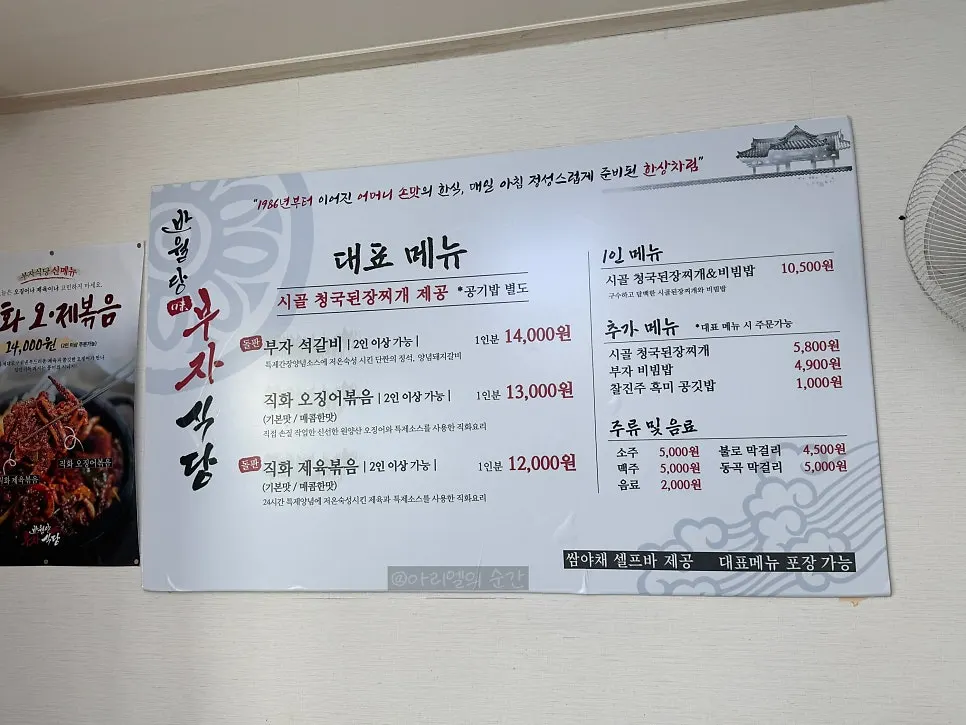 부자식당 신메뉴
오징어나 제육이나 고민하지 마세요.
화 오·제볶음
14,000원 (2인 이상 주문가능)
직화 오징어볶음
직화 제육볶음
반월당
부자식당
"1986년부터 이어진 어머니 손맛의 한식, 매일 아침 정성스럽게 준비된 한상차림"
반월당
부자식당
대표 메뉴
시골 청국된장찌개 제공 *공기밥 별도
돌판 부자 석갈비 | 2인 이상 가능 | 1인분 14,000원
특제간장양념소스에 저온숙성 시킨 단짠의 정석, 양념돼지갈비
직화 오징어볶음 | 2인 이상 가능 | 1인분 13,000원
(기본맛 / 매콤한맛)
직접 손질 작업한 신선한 원양산 오징어와 특제소스를 사용한 직화요리
돌판 직화 제육볶음 | 2인 이상 가능 | 1인분 12,000원
(기본맛 / 매콤한맛)
24시간 특제양념에 저온숙성시킨 제육과 특제소스를 사용한 직화요리
1인 메뉴
시골 청국된장찌개&비빔밥 10,500원
구수하고 담백한 시골된장찌개와 비빔밥
추가 메뉴 *대표 메뉴 시 주문가능
시골 청국된장찌개 5,800원
부자 비빔밥 4,900원
찰진주 흑미 공깃밥 1,000원
주류 및 음료
소주 5,000원 불로 막걸리 4,500원
맥주 5,000원 동곡 막걸리 5,000원
음료 2,000원
쌈야채 셀프바 제공 대표메뉴 포장 가능
@아리엘의 순간